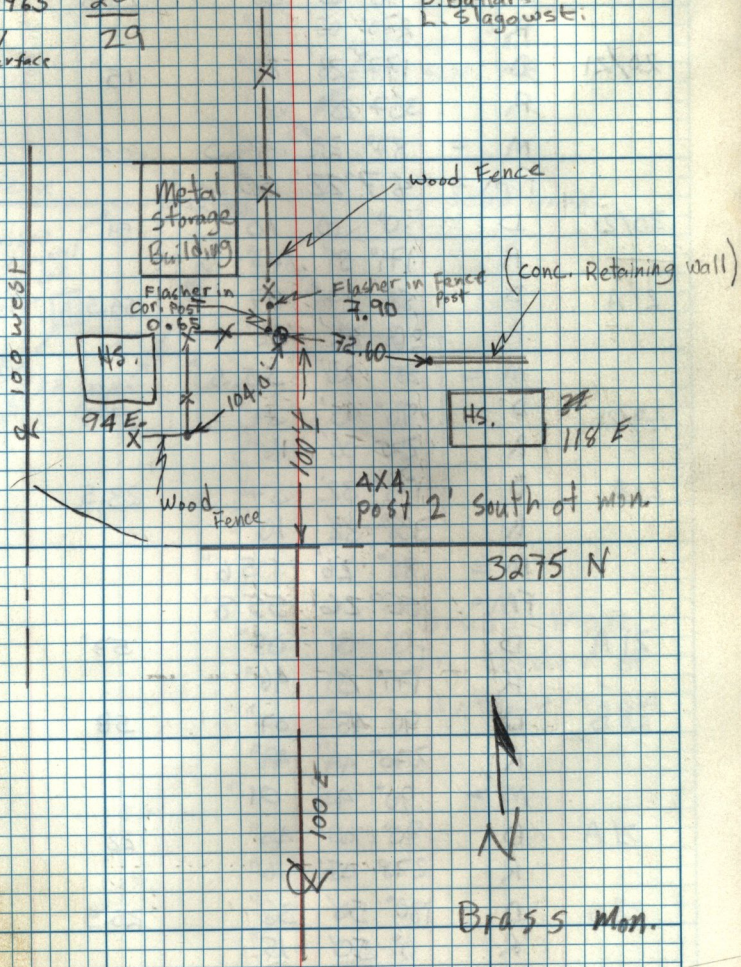 29
rface
L. Slagowski
Metal
Storage
Building
Wood Fence
Flasher in
cor. post
0.65
Flasher in Fence
Post
7.90
(conc. Retaining wall)
72.60
HS.
94 E.
104.0'
100'±
HS.
118 E
4X4
post 2' south of mon.
Wood
Fence
3275 N
℄ 100 west
100 E
℄
N
Brass Mon.